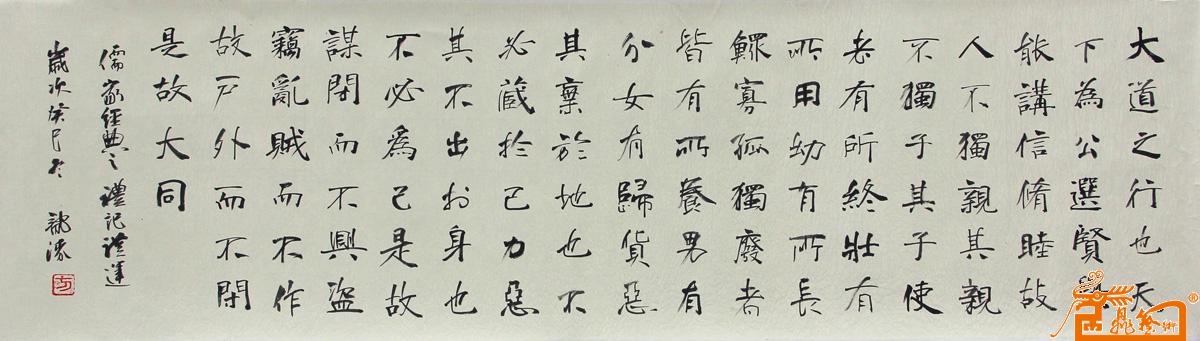 大道之行也天
下為公選賢
能講信脩睦故
人不獨親其親
不獨子其子使
老有所終壯有
所用幼有所長
鰥寡孤獨廢者
皆有所養男有
分女有歸貨惡
其棄於地也不
必藏於己力惡
其不出於身也
不必為己是故
謀閉而不興盜
竊亂賊而不作
故戶外而不閉
是故大同
儒家經典之禮記禮運
歲次癸巳